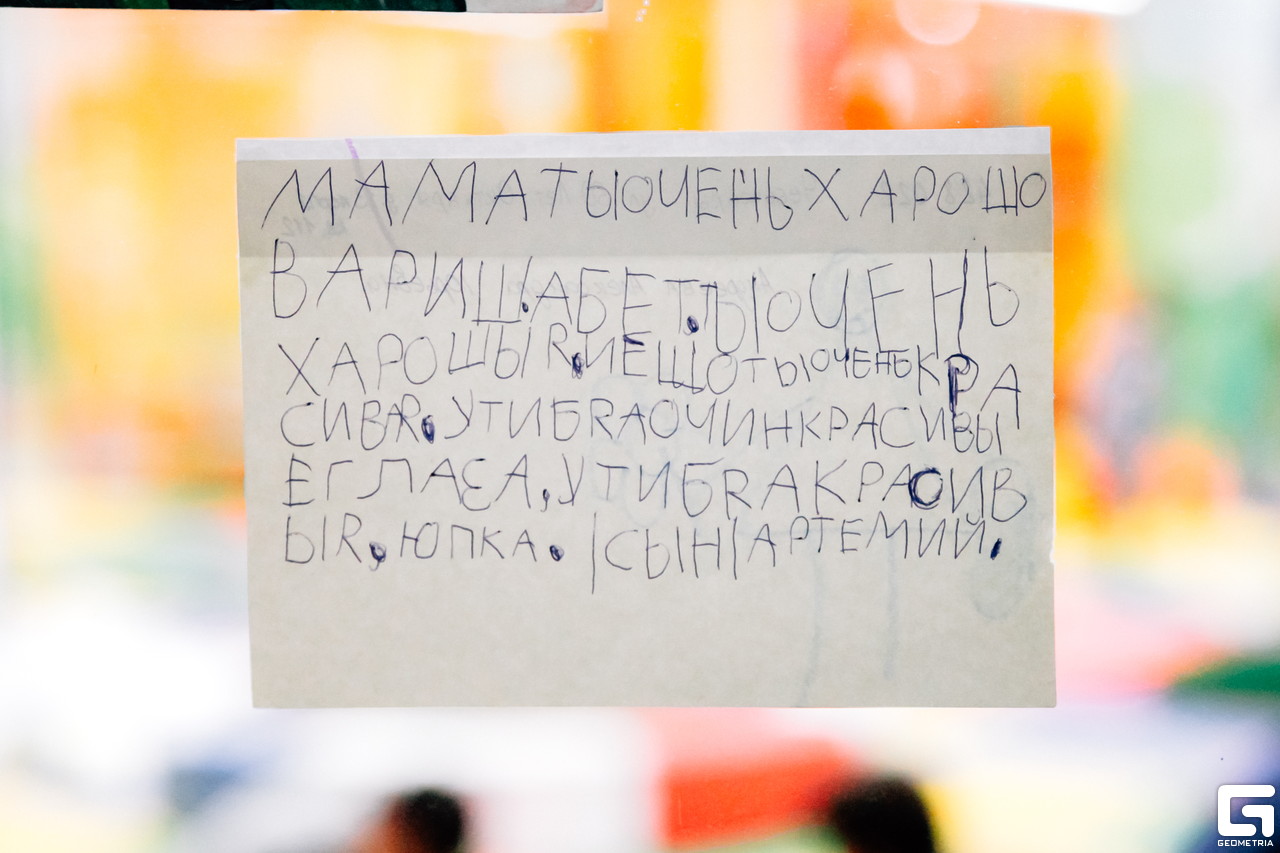 МАМАТЫОЧЕНЬХАРОШО
ВАРИШ.АБЕТ.ТЫОЧЕНЬ
ХАРОШЫR.ИЕЩОТЫОЧЕНЬКРА
СИВАR.УТИБRАОЧИНКРАСИВЫ
ЕГЛАЗА,УТИБRАКРАСИВ
ЫR,ЮПКА.|СЫН|АРТЕМИЙ.
GEOMETRIA